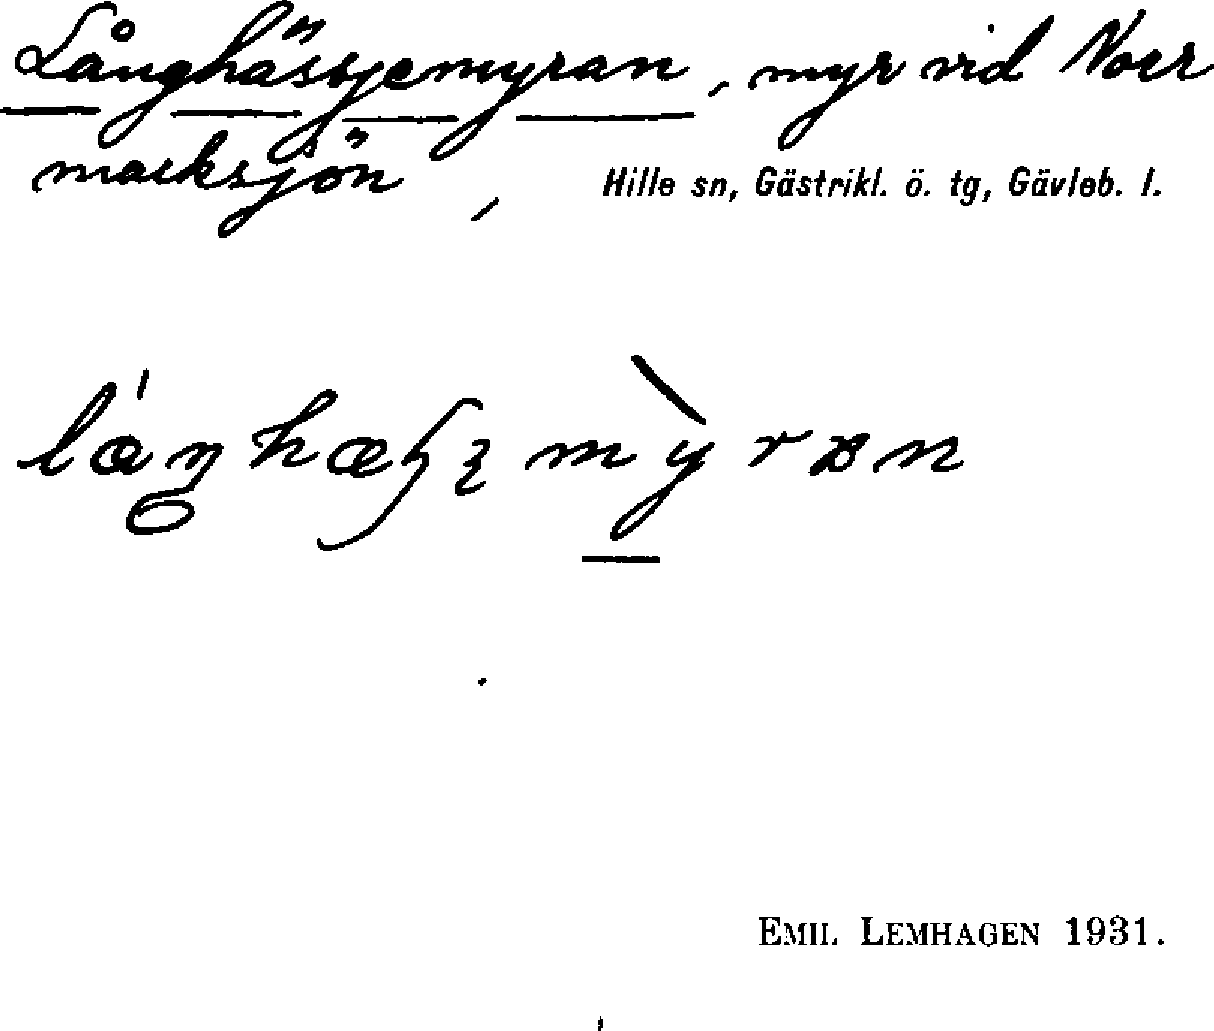 Långhässjemyran, myr vid Norr
marksjön, Hille sn, Gästrikl. ö. tg, Gävleb. l.
EMIL LEMHAGEN 1931.